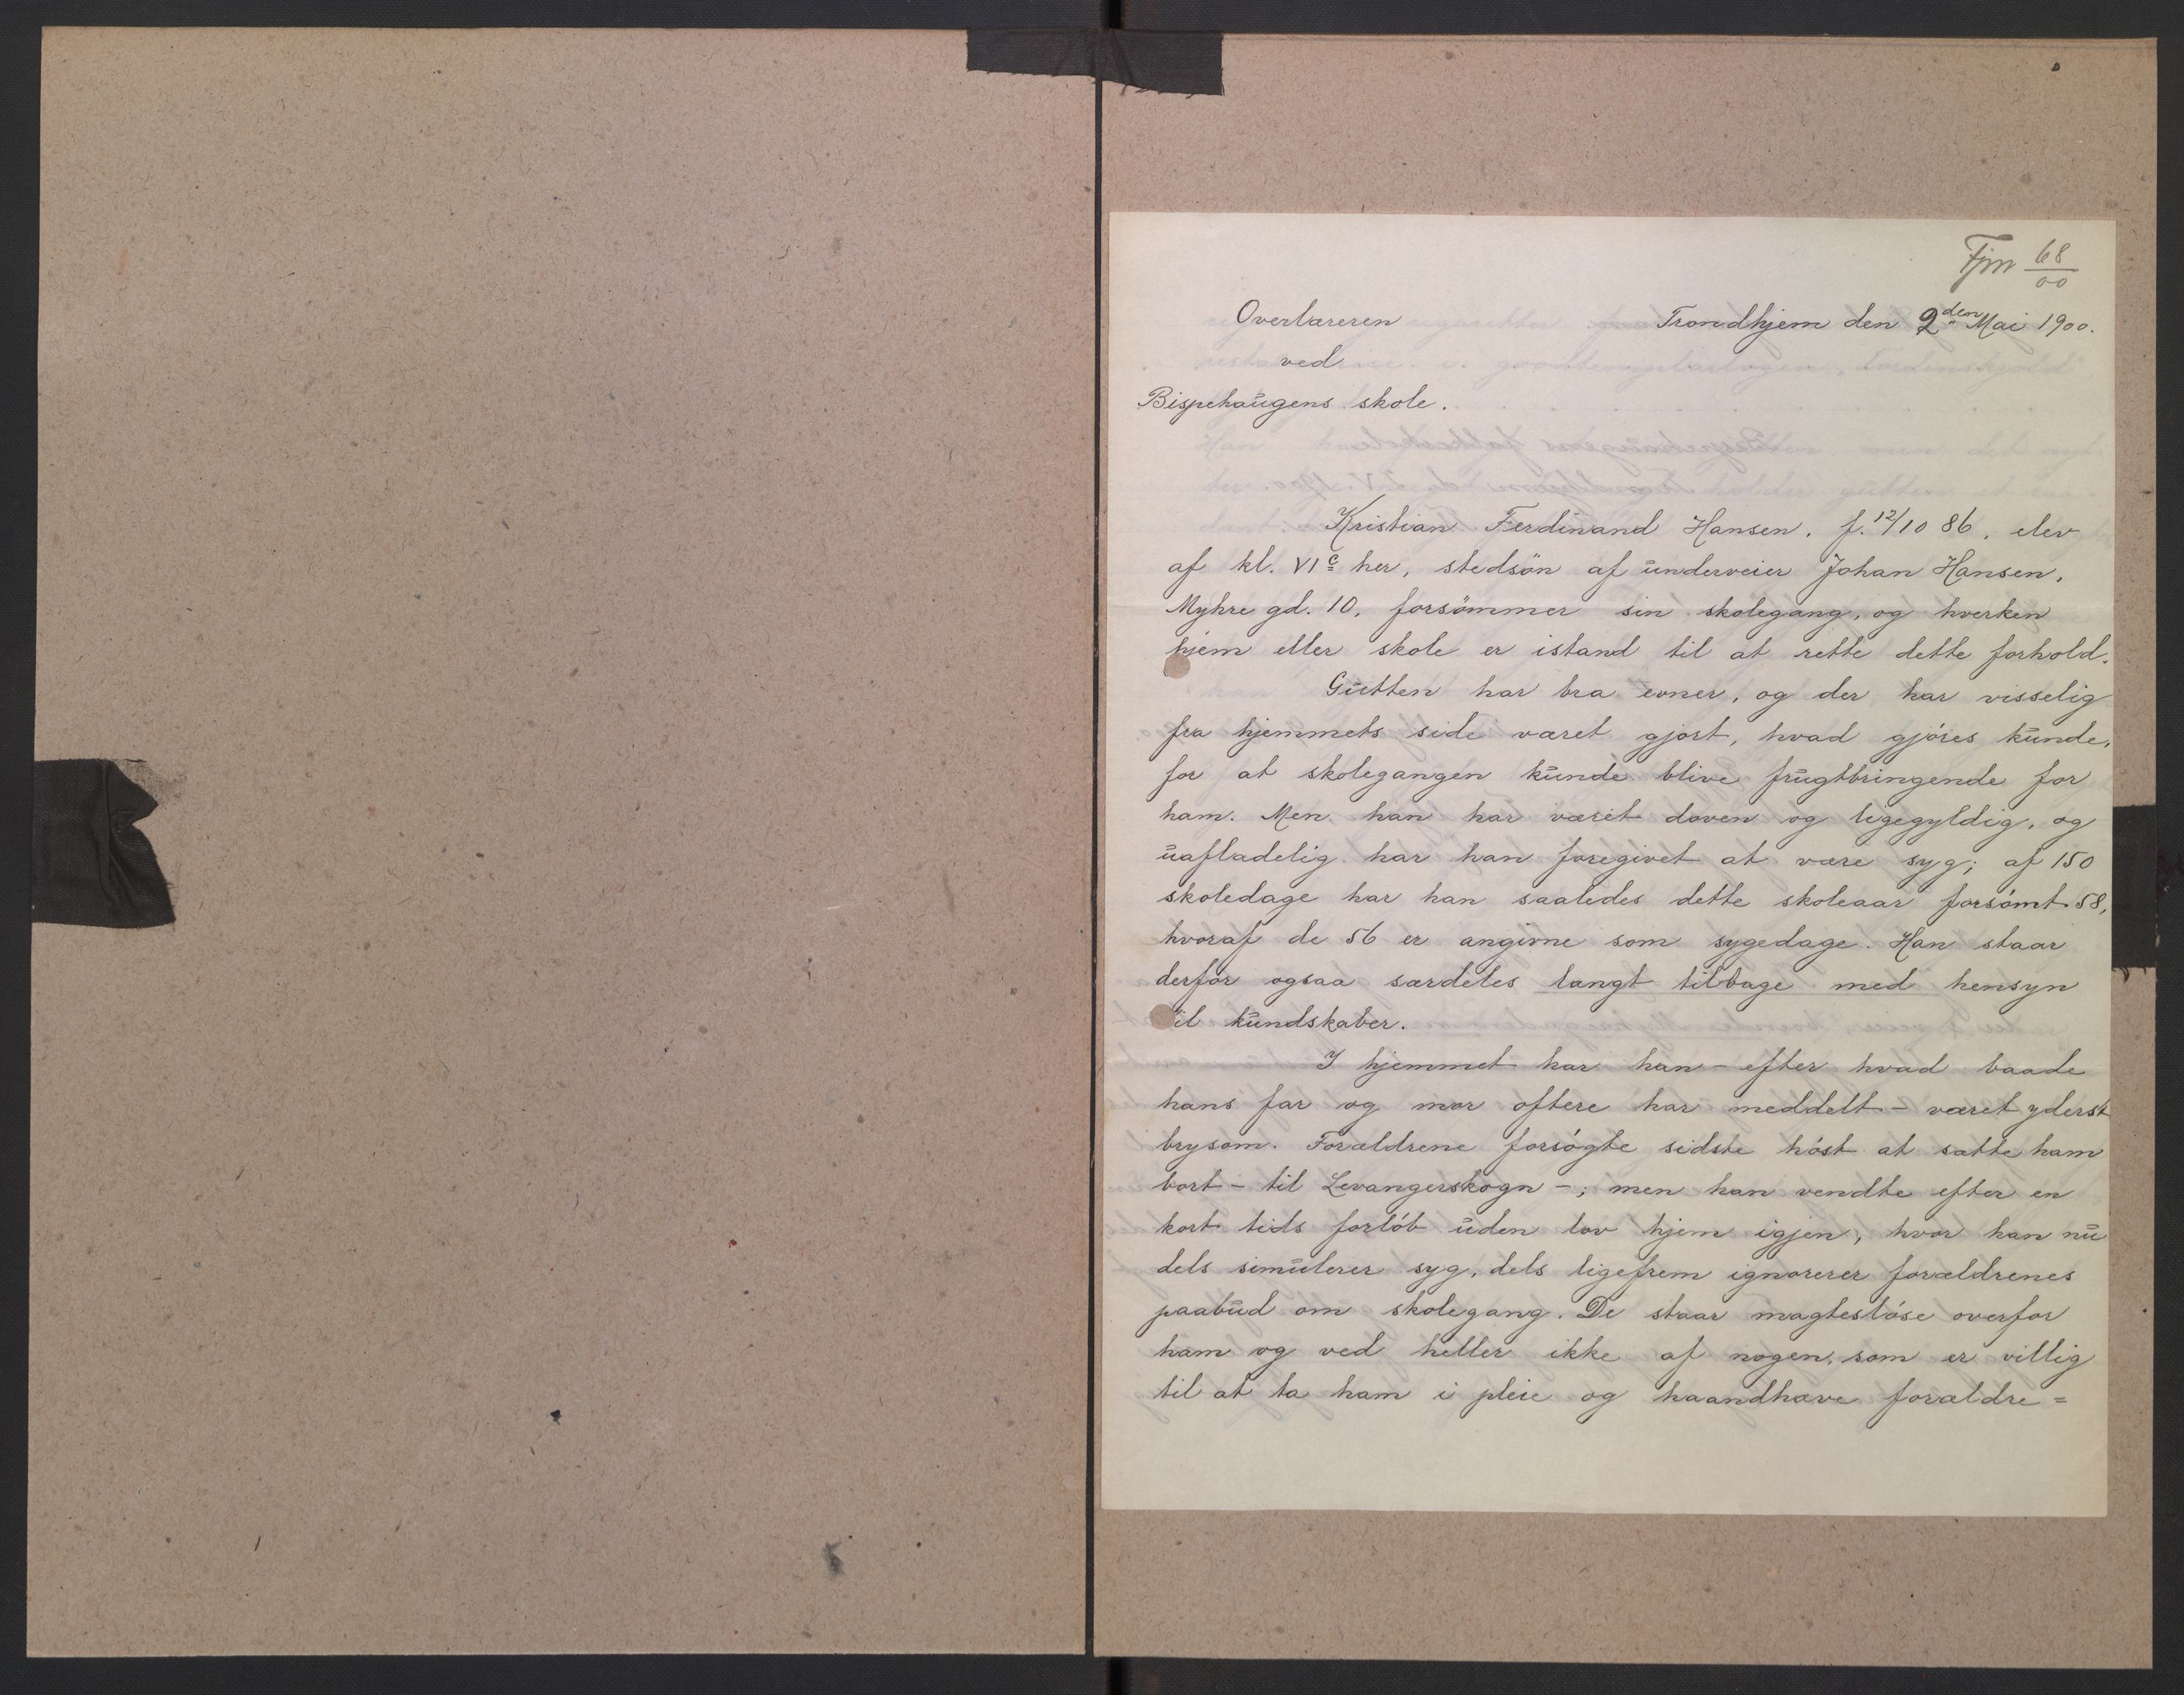 Fjm 68/00
Overlæreren Trondhjem den 2den Mai 1900.
ved
Bispehaugens skole.
Kristian Ferdinand Hansen, f. 12/10 86, elev
af kl. VIc her, stedsön af underveier Johan Hansen,
Myhre gd. 10, forsömmer sin skolegang, og hverken
hjem eller skole er istand til at rette dette forhold.
Gutten har bra evner, og der har visselig
fra hjemmets side været gjort, hvad gjöres kunde,
for at skolegangen kunde blive frugtbringende for
ham. Men han har været doven og ligegyldig, og
uafladelig har han foregivet at være syg; af 150
skoledage har han saaledes dette skoleaar forsömt 58,
hvoraf de 56 er angivne som sygedage. Han staar
derfor ogsaa særdeles langt tilbage med hensyn
til kundskaber.
I hjemmet har han – efter hvad baade
hans far og mor oftere har meddelt – været yderst
brysom. Forældrene forsögte sidste höst at sætte ham
bort – til Levangerskogn –; men han vendte efter en
kort tids forlöb uden lov hjem igjen, hvor han nu
dels simulerer syg, dels ligefrem ignorerer forældrenes
paabud om skolegang. De staar magteslöse overfor
ham og ved heller ikke af nogen, som er villig
til at ta ham i pleie og haandhæve forældre=